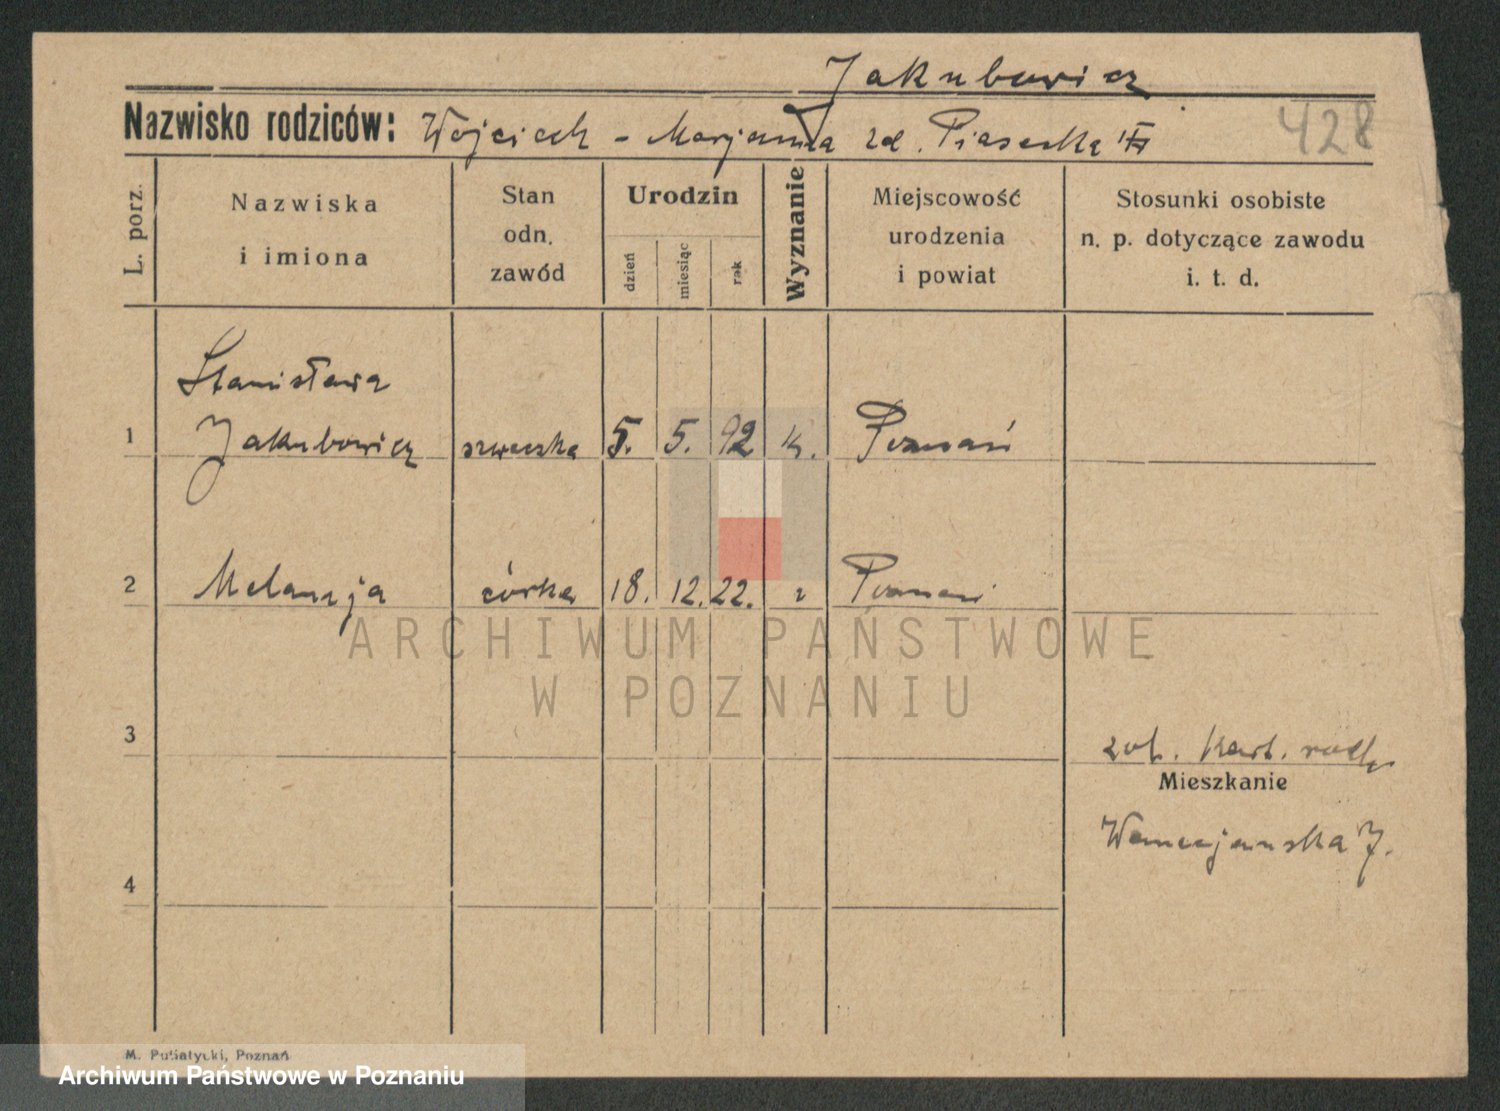 Jakubowicz
Nazwisko rodziców: Wojciech - Marjanna zd. Piasecka
428
L. porz.
Nazwiska
i imiona
Stan
odn.
zawód
Urodzin
dzień
miesiąc
rok
Wyznanie
Miejscowość
urodzenia
i powiat
Stosunki osobiste
n. p. dotyczące zawodu
i. t. d.
Stanisława
1 Jakubowicz szwaczka 5. 5. 92 k. Poznań
2 Melanja córka 18. 12. 22. Poznań
ARCHIWUM PAŃSTWOWE
W POZNANIU
3
zob. kart. rodz.
Mieszkanie
Wenecjańska 7.
4
M. Putiatycki, Poznań
Archiwum Państwowe w Poznaniu